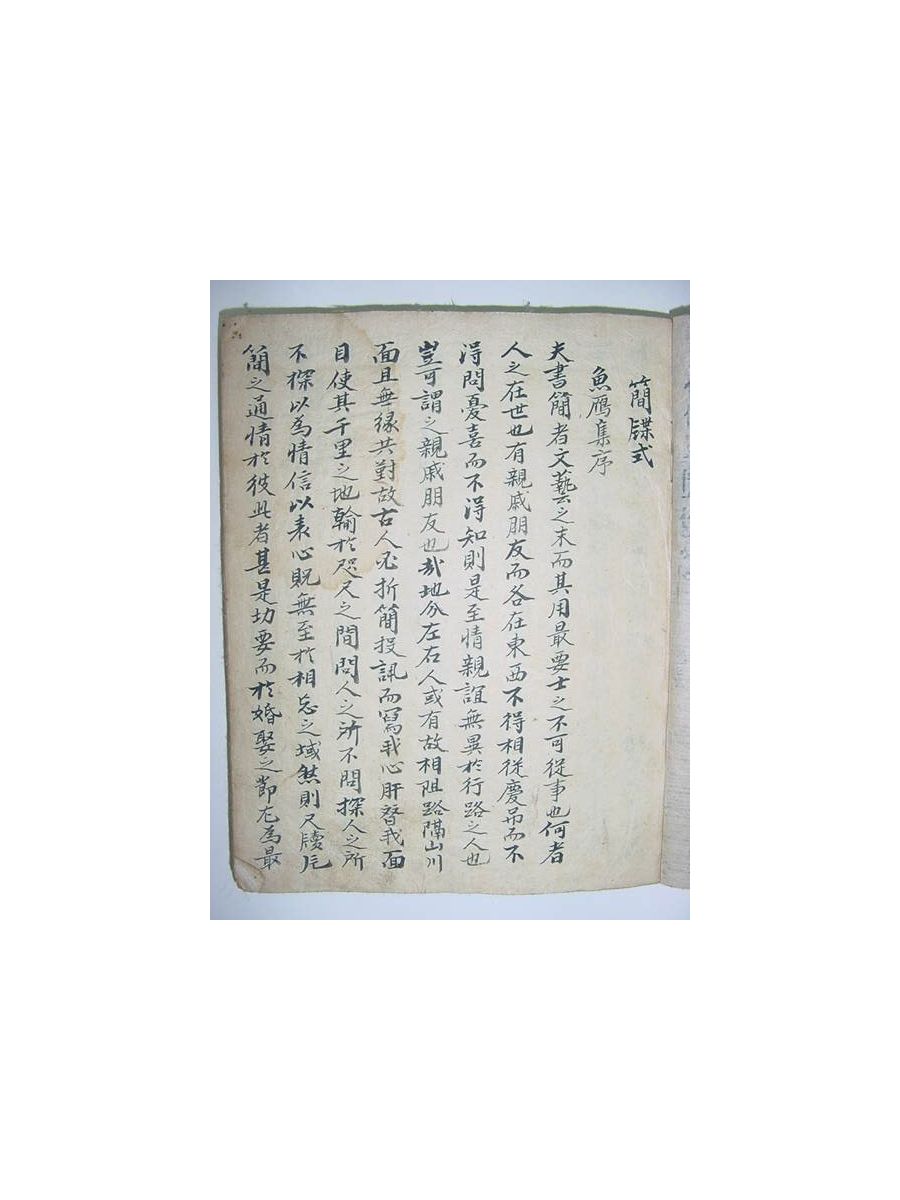 簡牒式
魚鴈集序
夫書簡者文藝之末而其用最要士之不可從事也何者
人之在世也有親戚朋友而各在東西不得相從慶吊而不
得問憂喜而不得知則是至情親誼無異於行路之人也
豈可謂之親戚朋友也哉地分左右人或有故相阻路隔山川
面且無緣共對故古人必折簡投訊而寫我心肝替我面
目使其千里之地輸於咫尺之間問人之所不問探人之所
不探以為情信以表心貺無至於相忘之域然則尺牘片
簡之通情於彼此者甚是切要而於婚娶之節尤為最